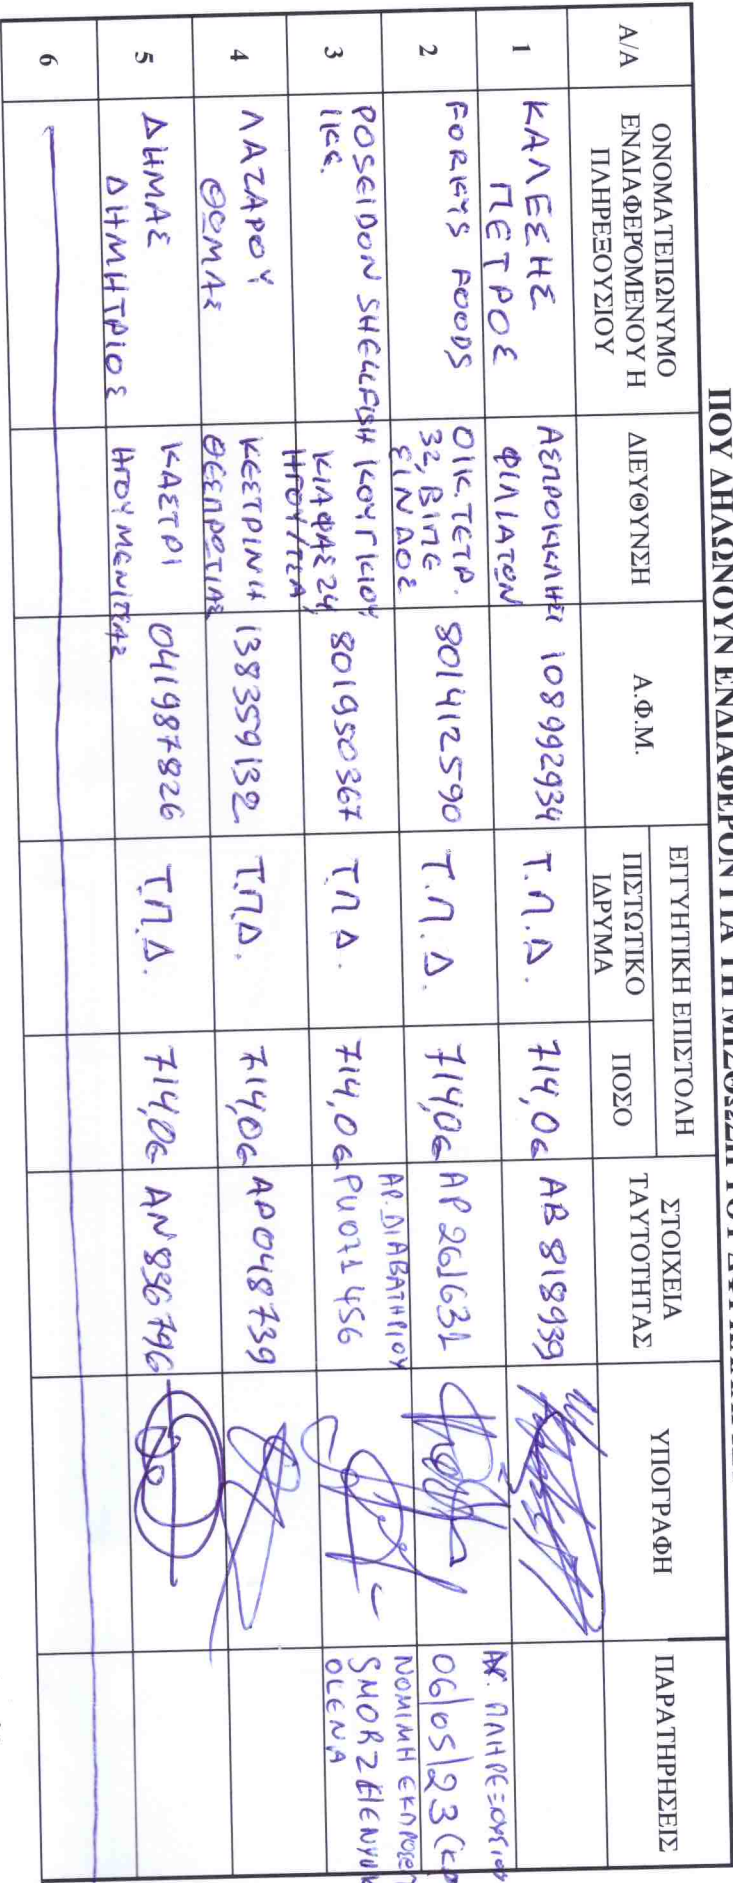 ΠΟΥ ΔΗΛΩΝΟΥΝ ΕΝΔΙΑΦΕΡΟΝ ΓΙΑ ΤΗ ΜΙΣΘΩΣΗ ΤΟΥ
Α/Α
ΟΝΟΜΑΤΕΠΩΝΥΜΟ
ΕΝΔΙΑΦΕΡΟΜΕΝΟΥ Η
ΠΛΗΡΕΞΟΥΣΙΟΥ
ΔΙΕΥΘΥΝΣΗ
Α.Φ.Μ.
ΕΓΓΥΗΤΙΚΗ ΕΠΙΣΤΟΛΗ
ΠΙΣΤΩΤΙΚΟ
ΙΔΡΥΜΑ
ΠΟΣΟ
ΣΤΟΙΧΕΙΑ
ΤΑΥΤΟΤΗΤΑΣ
ΥΠΟΓΡΑΦΗ
ΠΑΡΑΤΗΡΗΣΕΙΣ
1
ΚΑΛΕΣΗΣ
ΠΕΤΡΟΣ
ΑΣΠΡΟΚΚΛΗΣΙ
ΦΙΛΙΑΤΩΝ
108992934
Τ.Π.Δ.
714,0€
ΑΒ 818939
2
FORKYS FOODS
ΟΙΚ. ΤΕΤΡ.
32, ΒΙΠΕ
ΣΙΝΔΟΣ
801412590
Τ.Π.Δ.
714,0€
ΑΡ 261631
ΑΡ. ΠΛΗΡΕΞΟΥΣΙΟΥ
06/05/23
3
POSEIDON SHELLFISH
ΙΚΕ.
ΚΟΥΓΚΙΟΥ
ΚΙΑΦΑΣ 24,
ΗΓΟΥ/ΤΣΑ
801950367
Τ.Π.Δ.
714,0€
ΑΡ. ΔΙΑΒΑΤΗΡΙΟΥ
PU071456
ΝΟΜΙΜΗ ΕΚΠΡΟΣΩΠ
OLENA
4
ΛΑΖΑΡΟΥ
ΘΩΜΑΣ
ΚΕΣΤΡΙΝΗ
ΘΕΣΠΡΩΤΙΑΣ
138359132
Τ.Π.Δ.
714,0€
ΑΡ048739
5
ΔΗΜΑΣ
ΔΗΜΗΤΡΙΟΣ
ΚΑΣΤΡΙ
ΗΓΟΥΜΕΝΙΤΣΑΣ
041987826
Τ.Π.Δ.
714,0€
ΑΝ 836796
6